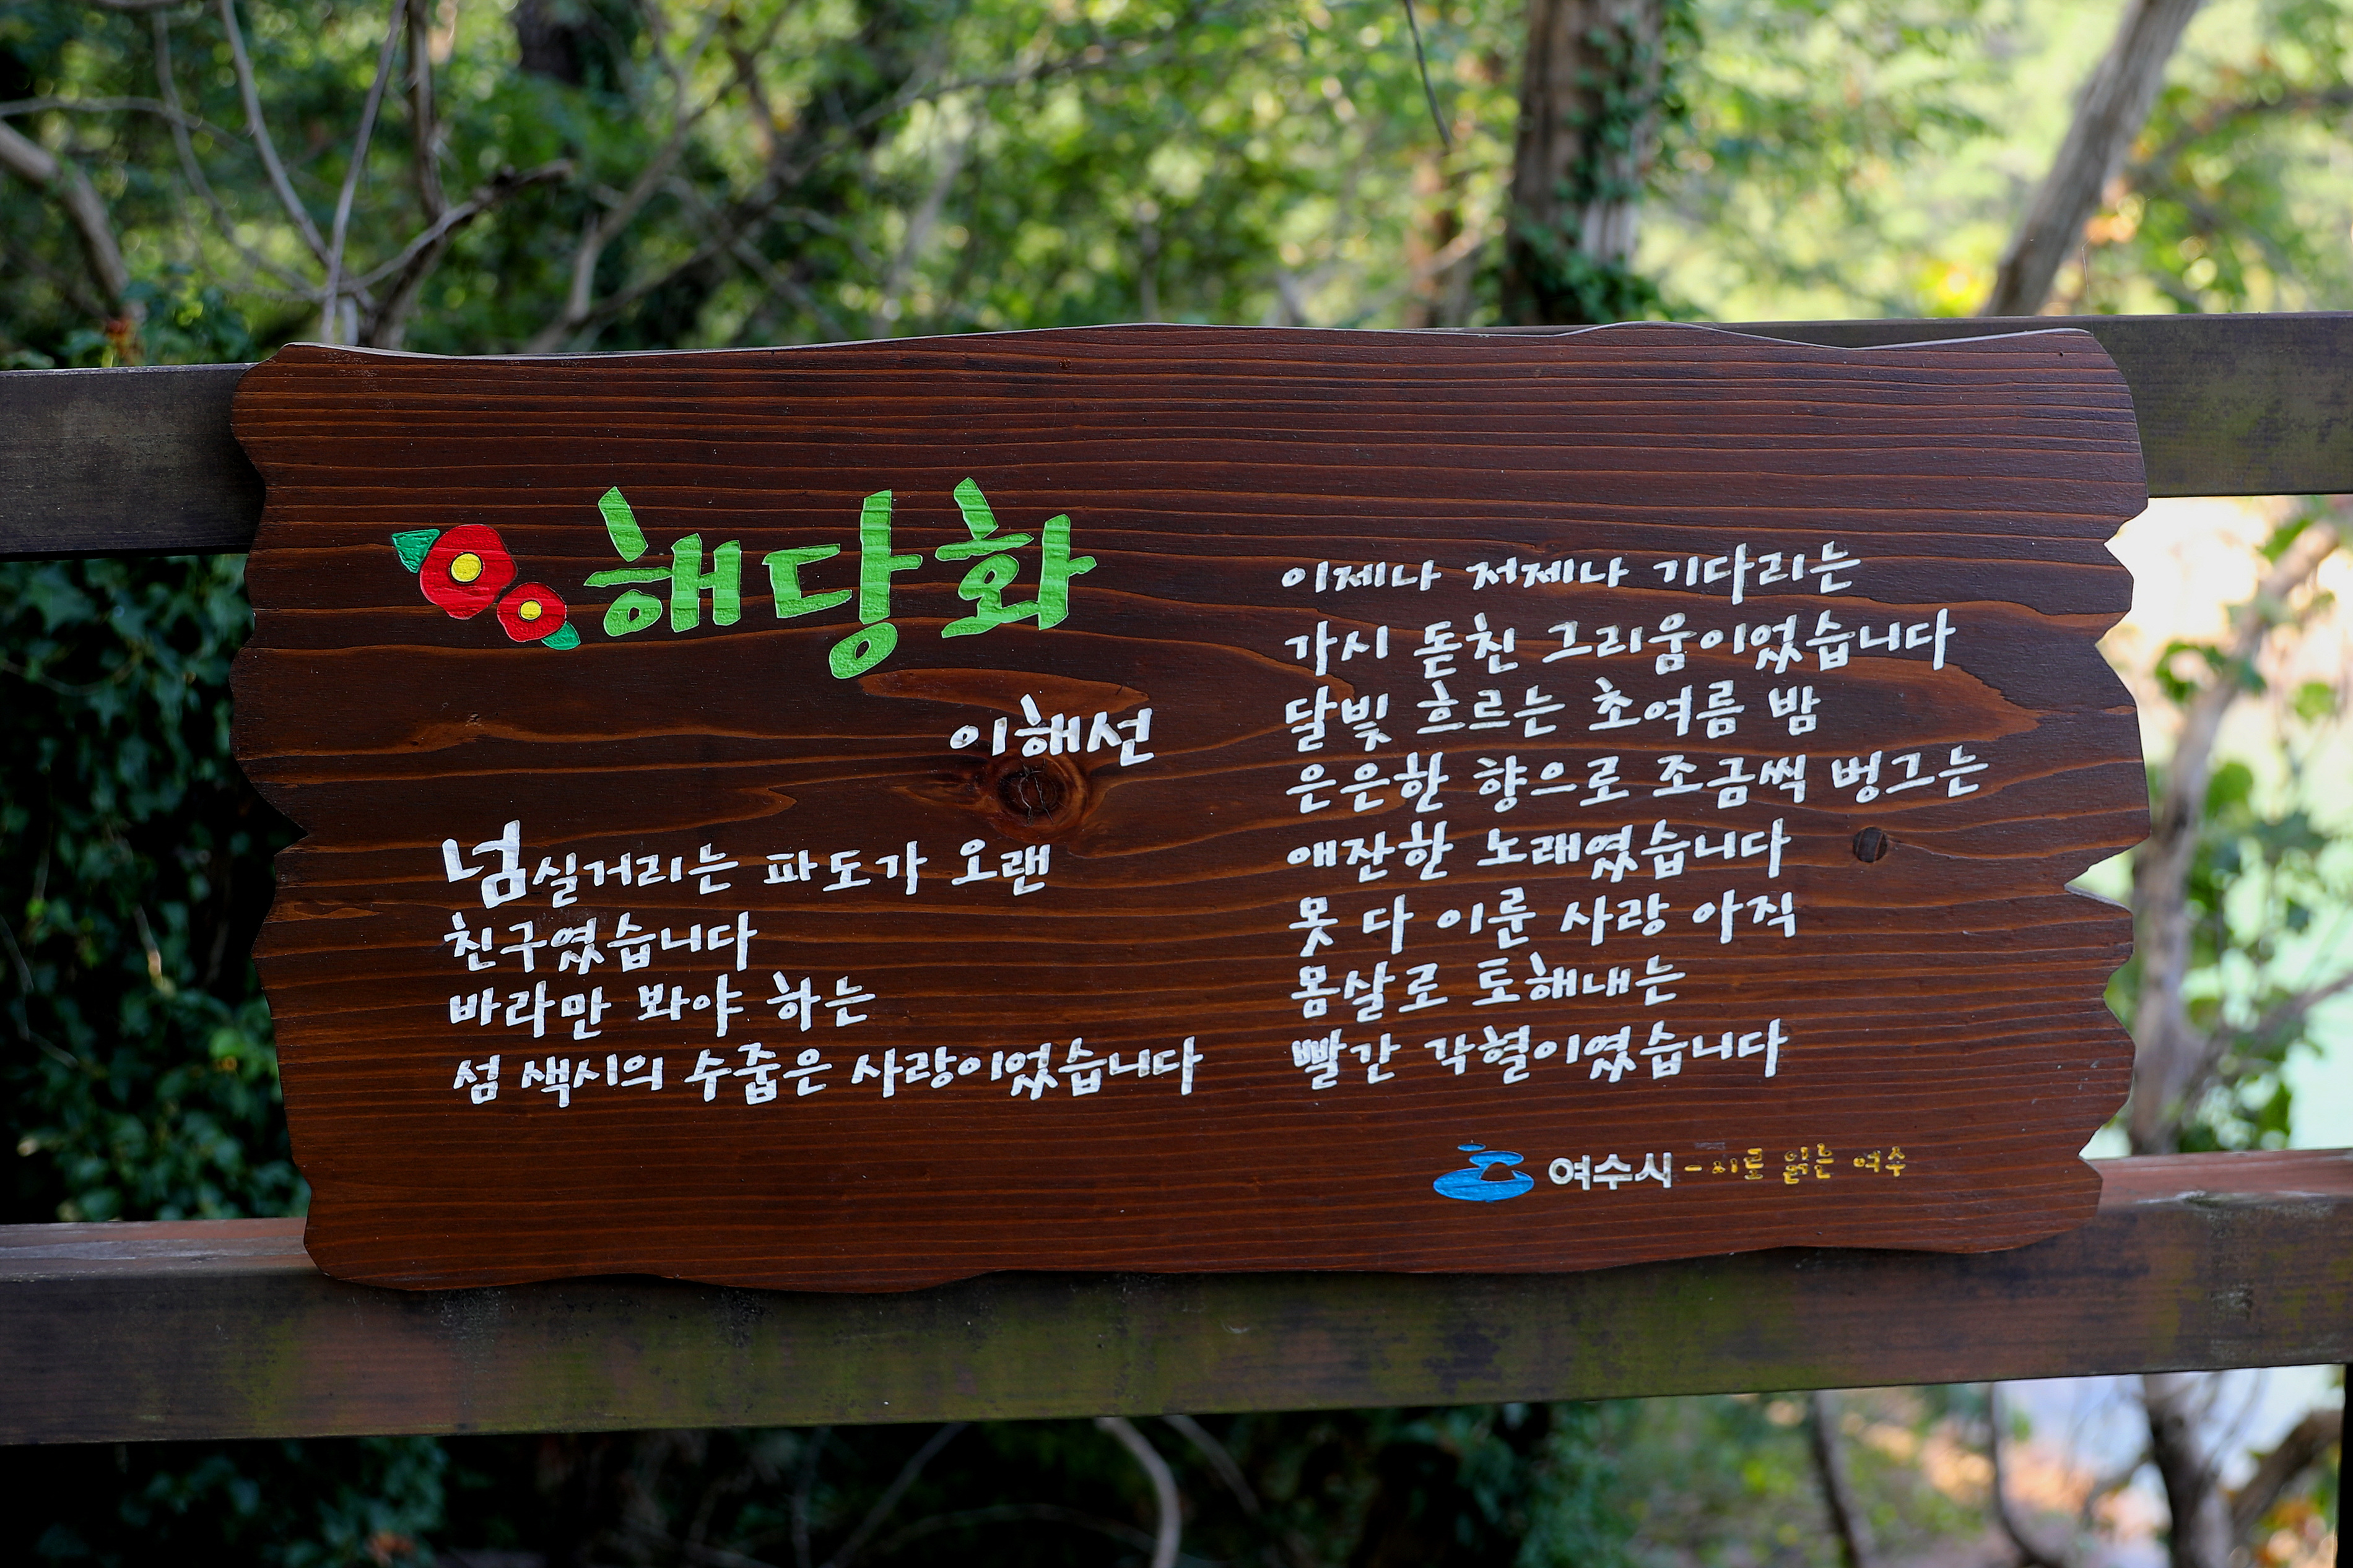 해당화
이해선
넘실거리는 파도가 오랜
친구였습니다
바라만 봐야 하는
섬 색시의 수줍은 사랑이었습니다
이제나 저제나 기다리는
가시 돋친 그리움이었습니다
달빛 흐르는 초여름 밤
은은한 향으로 조금씩 벙그는
애잔한 노래였습니다
못 다 이룬 사랑 아직
몸살로 토해내는
빨간 각혈이였습니다
여수시 - 시를 읽는 여수